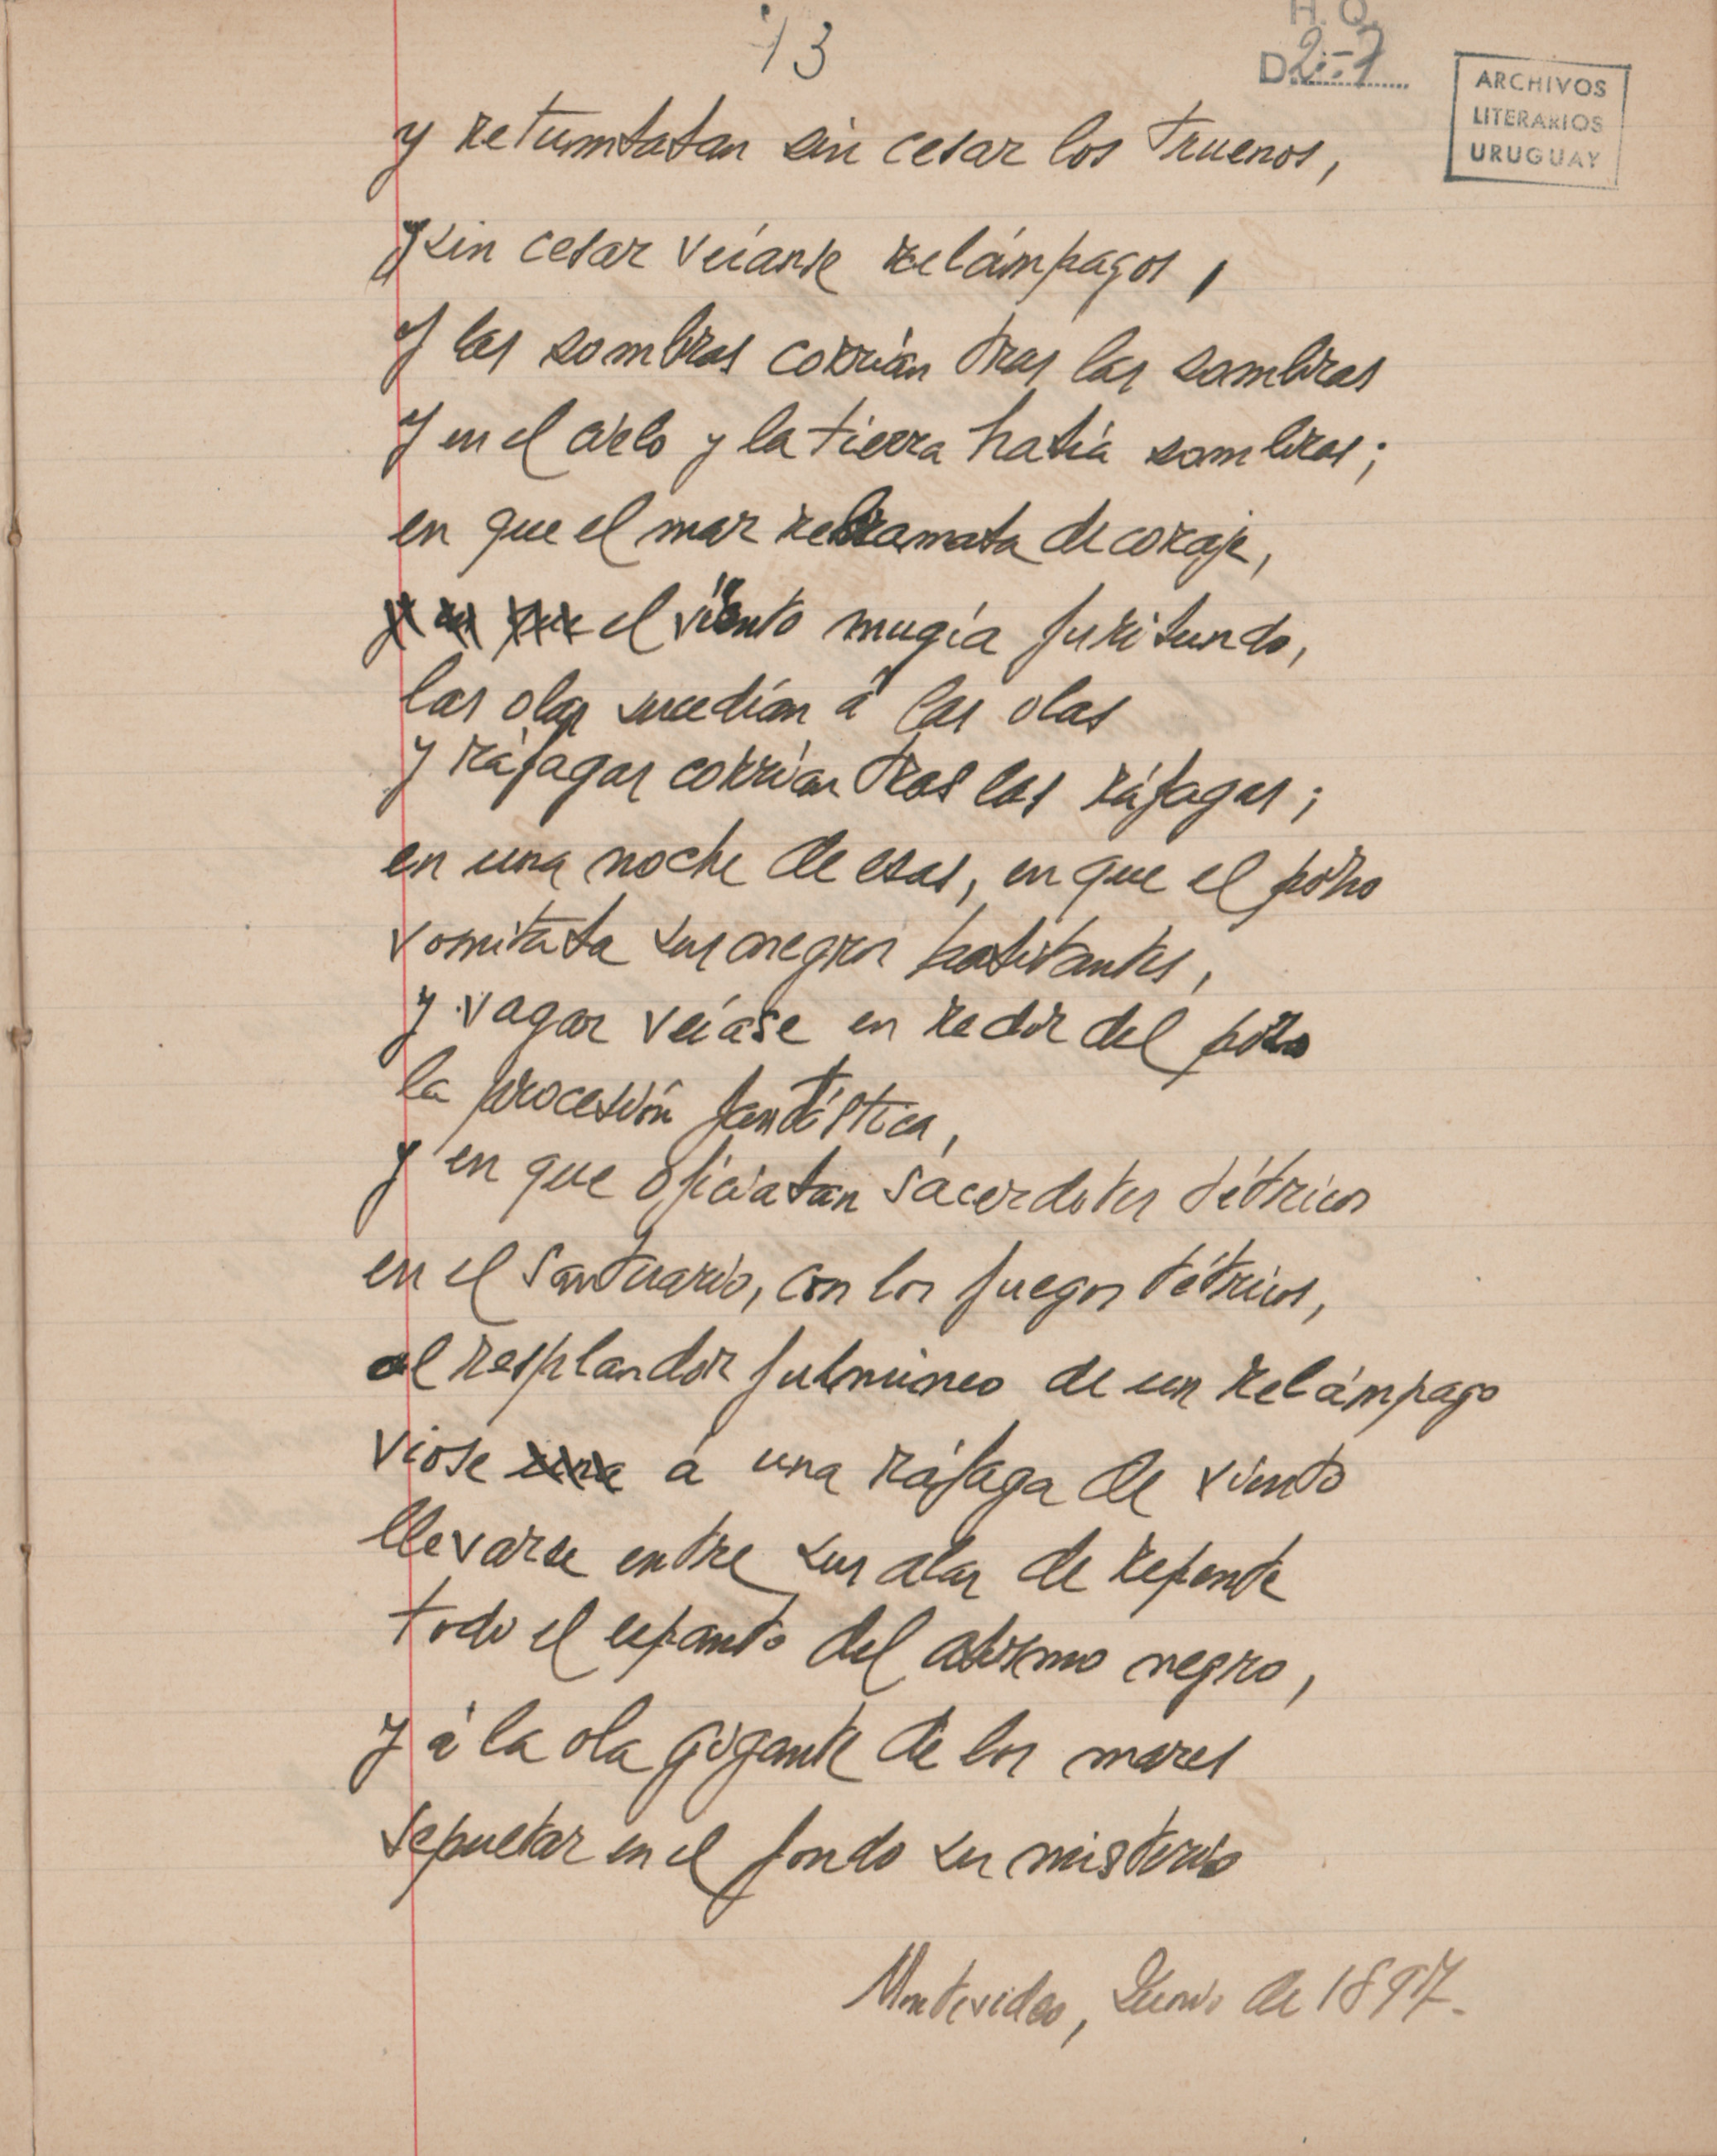 13
H. Q.
D. 2-7
ARCHIVOS
LITERARIOS
URUGUAY
y retumbaban sin cesar los truenos,
y sin cesar veíanse relámpagos,
y las sombras corrían tras las sombras
y en el cielo y la tierra había sombras;
en que el mar rebramaba de coraje,
y en que el viento mugía furibundo,
las olas sucedían á las olas
y ráfagas corrían tras las ráfagas;
en una noche de esas, en que el pozo
vomitaba sus negros habitantes,
y vagar veíase en redor del pozo
la procesión fantástica,
y en que oficiaban sacerdotes tétricos
en el Santuario, con los fuegos tétricos,
al resplandor fulmineo de un relámpago
viose una á una ráfaga de viento
llevarse entre sus alas de repente
todo el espanto del abismo negro,
y á la ola gigante de los mares
sepultar en el fondo su misterio
Montevideo, Junio de 1897.